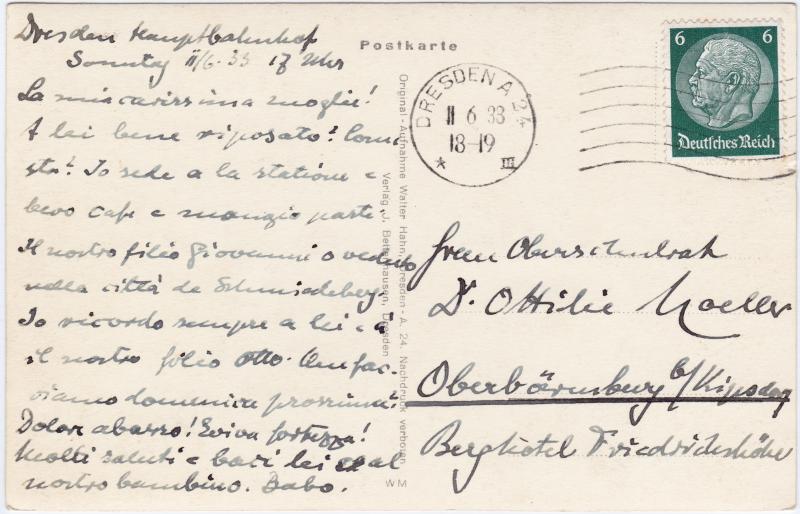 Dresden Hauptbahnhof
Sonntag 11/6.33 17 Uhr
La mia carissima moglie!
A lei bene riposato? Come
sta? Io sede a la statione e
bevo cafe e mangio paste.
Il nostro filio Giovanni o veduto
nella città de Schmiedeberg.
Io ricordo sempre a lei e a
il nostro filio Otto.
ciamo domenica prossima?
Dolor abarro! Eviva fortezza!
Molti saluti e baci lei e al
nostro bambino. Babo.
Postkarte
Original-Aufnahme Walter Hahn, Dresden-A. 24. Nachdruck verboten
Verlag J. Bettenhausen, Dresden
WM
DRESDEN A 24
11 6 33
18-19
* III
6 6
Deutsches Reich
Frau Oberschulrat
Dr. Ottilie Moeller
Oberbärnsburg b/Kipsdorf
Berghotel Friedrichshöhe